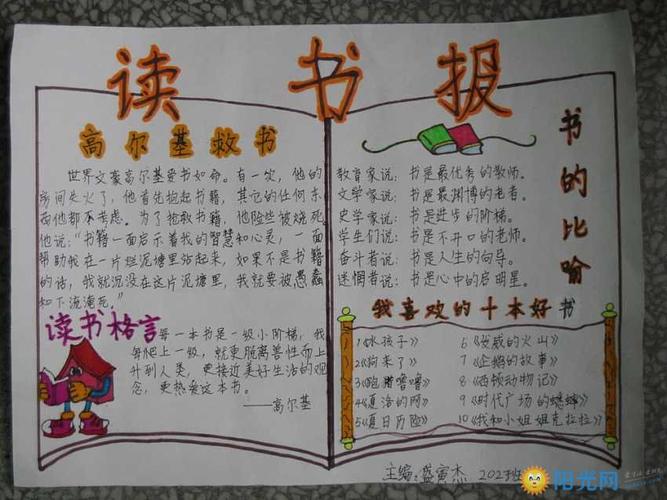 读书报
高尔基救书
世界文豪高尔基爱书如命。有一次，他的
房间失火了，他首先抱起书籍，其它的任何东
西他都不考虑。为了抢救书籍，他险些被烧死。
他说："书籍一面启示着我的智慧和心灵，一面
帮助我在一片烂泥塘里站起来，如果不是书籍
的话，我就沉没在这片泥塘里，我就要被愚蠢
和下流淹死。"
读书格言
每一本书是一级小阶梯，我
每爬上一级，就更脱离兽性而上
升到人类，更接近美好生活的观
念，更热爱这本书。
——高尔基
书的比喻
教育家说：书是最优秀的教师。
文学家说：书是最渊博的老者。
史学家说：书是进步的阶梯。
学生们说：书是不开口的老师。
奋斗者说：书是人生的向导。
迷惘者说：书是心中的启明星。
我喜欢的十本好书
1《水孩子》
2《狗来了》
3《跑猪噜噜》
4《夏洛的网》
5《夏日历险》
6《发威的火山》
7《企鹅的故事》
8《西顿动物记》
9《时代广场的蟋蟀》
10《我和小姐姐克拉拉》
主编：盛寅杰 202班
阳光网